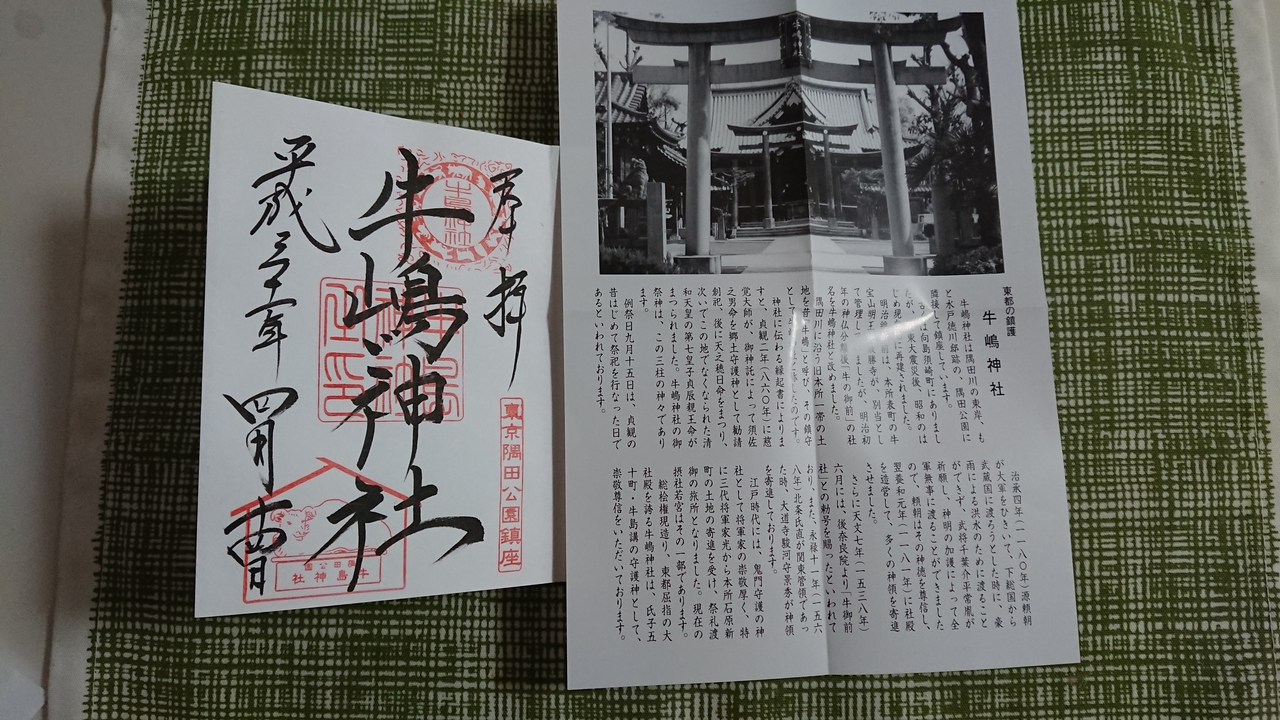 奉拝
牛嶋神社
平成三十一年四月十四日
東京隅田公園鎮座
隅田公園
牛島神社
東都の鎮護
牛嶋神社
牛嶋神社は隅田川の東岸、も
と水戸徳川邸跡の、隅田公園に
隣接して鎮座しています。
は向島須崎町にありまし
たが、関東大震災後、昭和のは
じめ現在地に再建されました。
明治維新前は、本所表町の牛
宝山明王院最勝寺が、別当とし
て管理していましたが、明治初
年の神仏分離後「牛の御前」の社
名を牛嶋神社と改めました。
隅田川に沿う旧本所一帯の土
地を昔「牛嶋」と呼び、その鎮守
として
神社に伝わる縁起書によりま
すと、貞観二年(八六〇年)に慈
覚大師が、御神託によって須佐
之男命を郷土守護神として勧請
創祀、後に天之穂日命をまつり、
次いでこの地でなくなられた清
和天皇の第七皇子貞辰親王命が
まつられました。牛嶋神社の御
祭神は、この三柱の神々であり
ます。
例祭日九月十五日は、貞観の
昔はじめて祭祀を行なった日で
あるといわれております。
治承四年(一一八〇年)源頼朝
が大軍をひきいて、下総国から
武蔵国に渡ろうとした時に、豪
雨による洪水のために渡ること
ができず、武将千葉介平常胤が
祈願し、神明の加護によって全
軍無事に渡ることができました
ので、頼朝はその神徳を尊信し、
翌養和元年(一一八一年)に社殿
を造営して、多くの神領を寄進
させました。
さらに天文七年(一五三八年)
六月には、後奈良院より「牛御前
社」との勅号を賜ったといわれて
おり、また、永禄十一年(一五六
八年)北条氏直が関東管領であっ
た時、大道寺駿河守景秀が神領
を寄進しております。
江戸時代には、鬼門守護の神
社として将軍家の崇敬厚く、特
に三代将軍家光から本所石原新
町の土地の寄進を受け、祭礼渡
御の旅所となりました。現在の
摂社若宮はその一部であります。
総桧権現造り、東都屈指の大
社殿を誇る牛嶋神社は、氏子五
十町・牛島講の守護神として、
崇敬尊信をいただいております。